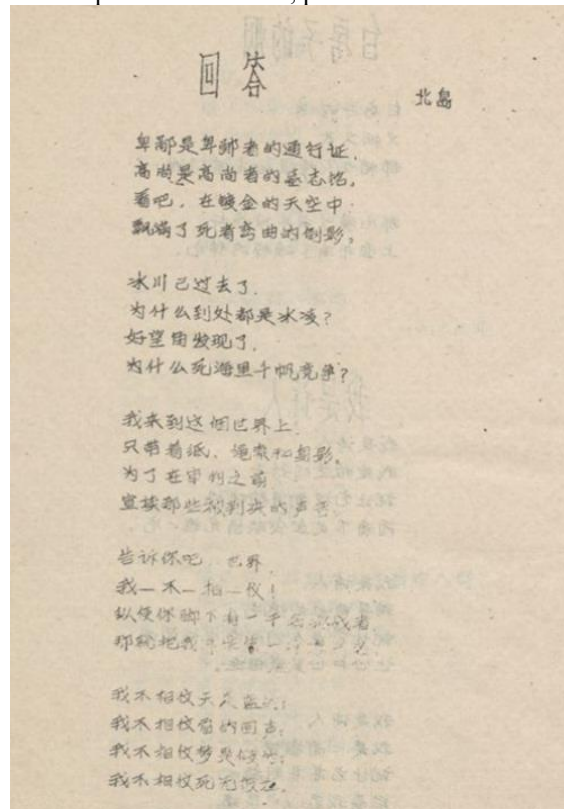 回答
北岛
卑鄙是卑鄙者的通行证，
高尚是高尚者的墓志铭。
看吧，在镀金的天空中
飘满了死者弯曲的倒影。
冰川已过去了，
为什么到处都是冰凌？
好望角发现了，
为什么死海里千帆竞争？
我来到这个世界上
只带着纸、绳索和身影。
为了在审判之前
宣读那些被判决的声音
告诉你吧，世界
我—不—相—信！
纵使你脚下有一千名挑战者
那就把我
我不相信天是蓝的；
我不相信雷的回声；
我不相信梦是假的；
我不相信死无报应。